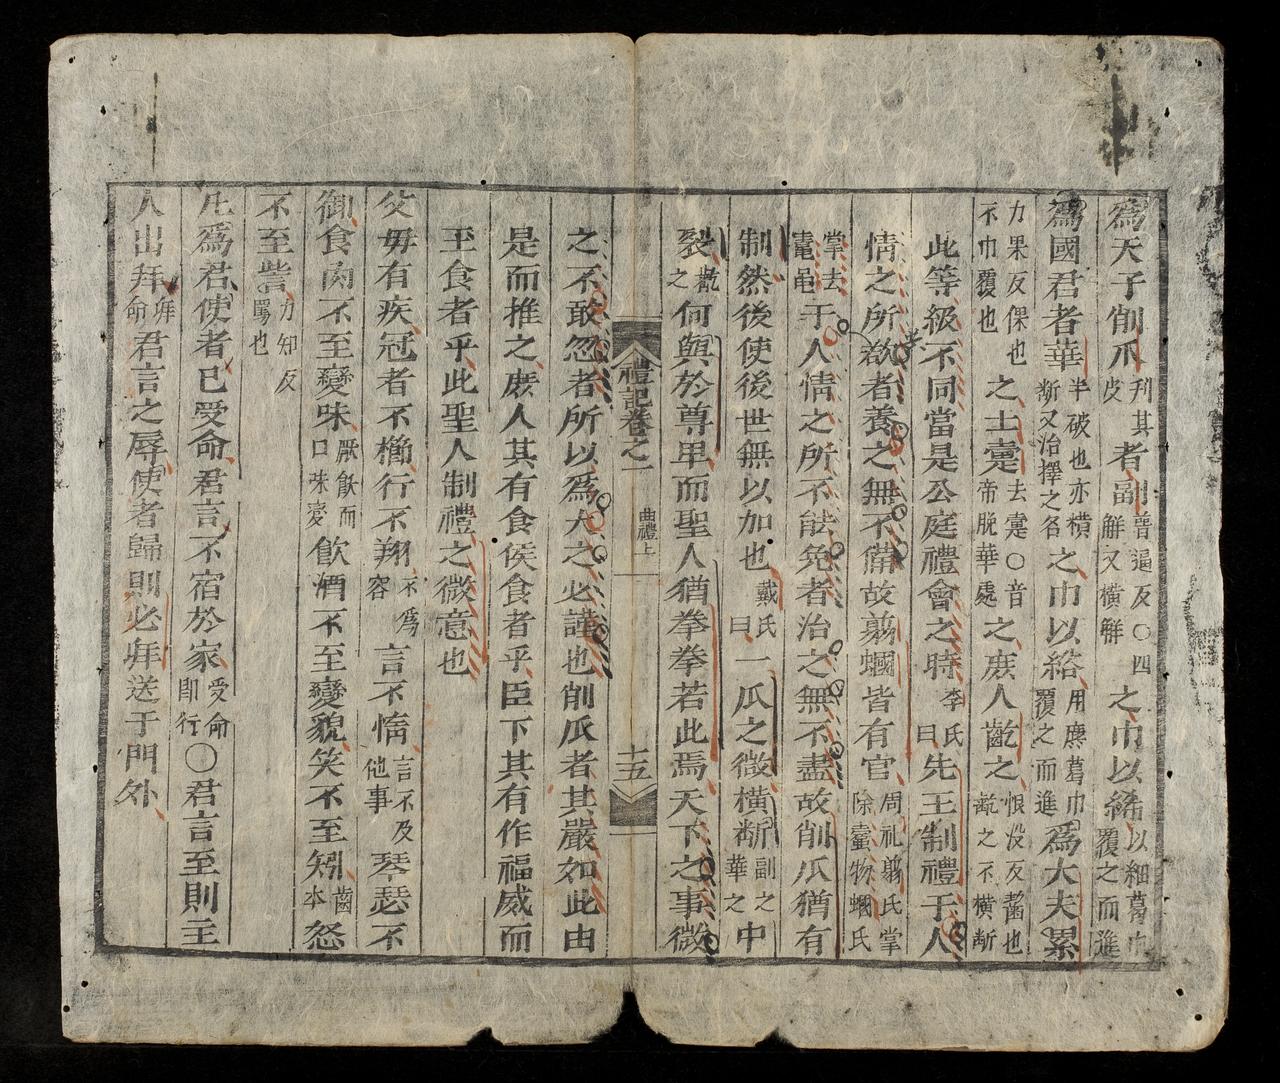 爲天子削瓜刋其皮者副普逼反〇四解又橫觧之巾以絺以細葛巾覆之而進
爲國君者華半破也亦橫斷又治擇之名之巾以綌用麁葛巾覆之而進爲大夫累
力果反倮也不巾覆也之士疐去疐〇音帝脫華處之庶人齕之恨没反齧也齕之不橫斷
此等級不同當是公庭禮會之時李氏曰先王制禮于人
情之所欲者養之無不備故翦蟈皆有官周礼翦氏掌除蠹物蟈氏
掌去鼃黽于人情之所不能免者治之無不盡故削瓜猶有
制然後使後世無以加也戴氏曰一瓜之微橫斷副之華之中
裂齕之何與於尊卑而聖人猶拳拳若此焉天下之事微
禮記卷之一 曲禮上 十五
之不敢忽者所以爲大之必謹也削瓜者其嚴如此由
是而推之庶人其有食侯食者乎臣下其有作福威而
玉食者乎此聖人制禮之微意也
父母有疾冠者不櫛行不翔不爲容言不惰言不及他事琴瑟不
御食肉不至變味厭飫而口味變飮酒不至變貌笑不至矧齒本怒
不至詈力知反罵也
凡爲君使者已受命君言不宿於家受命即行〇君言至則主
人出拜拜命君言之辱使者歸則必拜送于門外